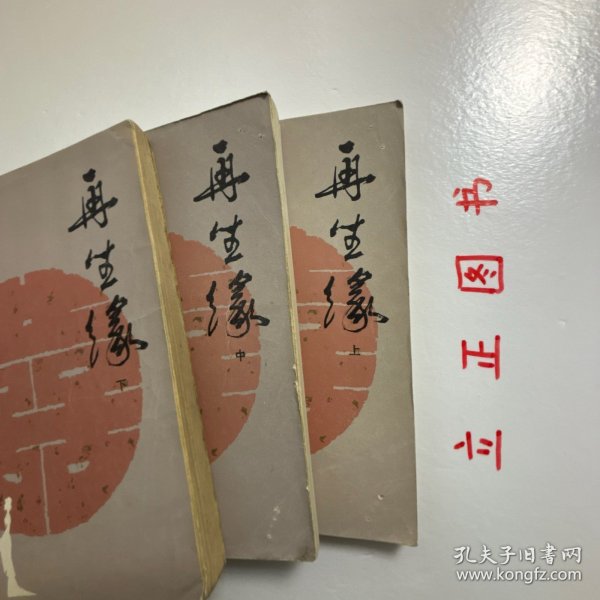 再生缘
下
再生缘
中
再生缘
上
立正图书
孔夫子旧书网
www.kongfz.com